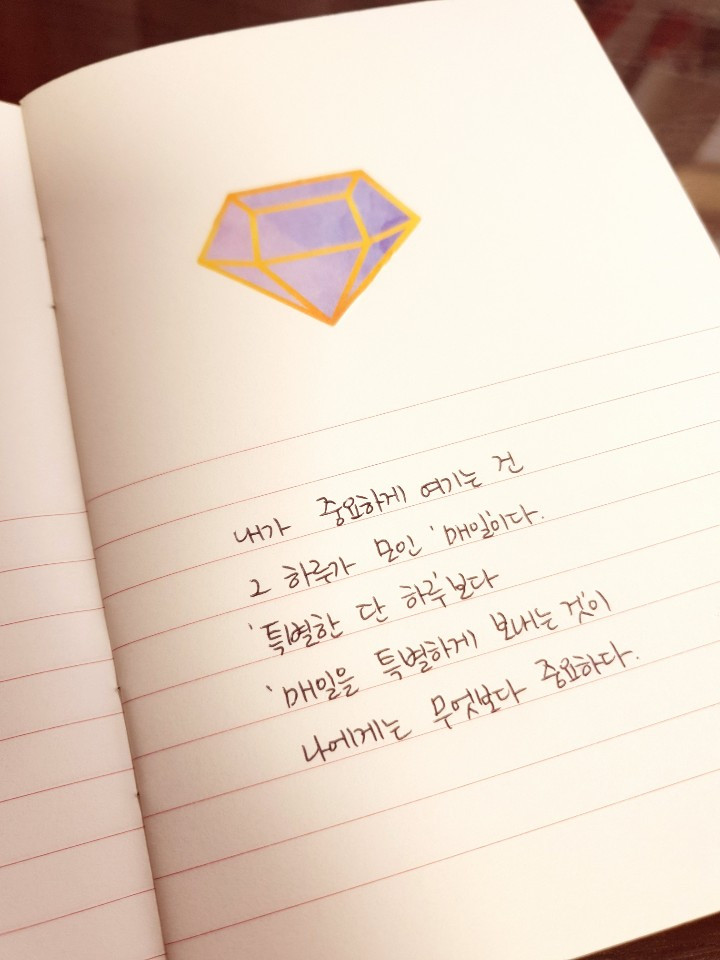 내가 중요하게 여기는 건
그 하루가 모인 '매일'이다.
'특별한 단 하루'보다
'매일을 특별하게 보내는 것'이
나에게는 무엇보다 중요하다.